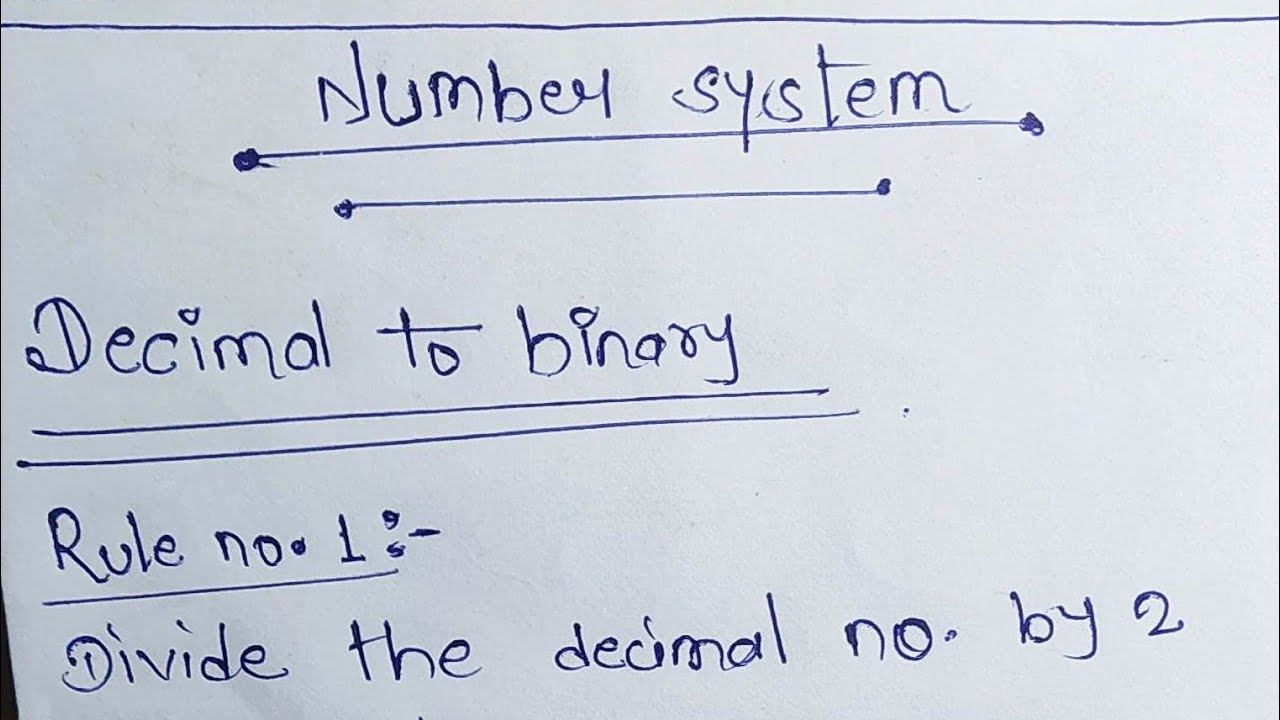 Number system
Decimal to binary
Rule no. 1 :-
Divide the decimal no. by 2